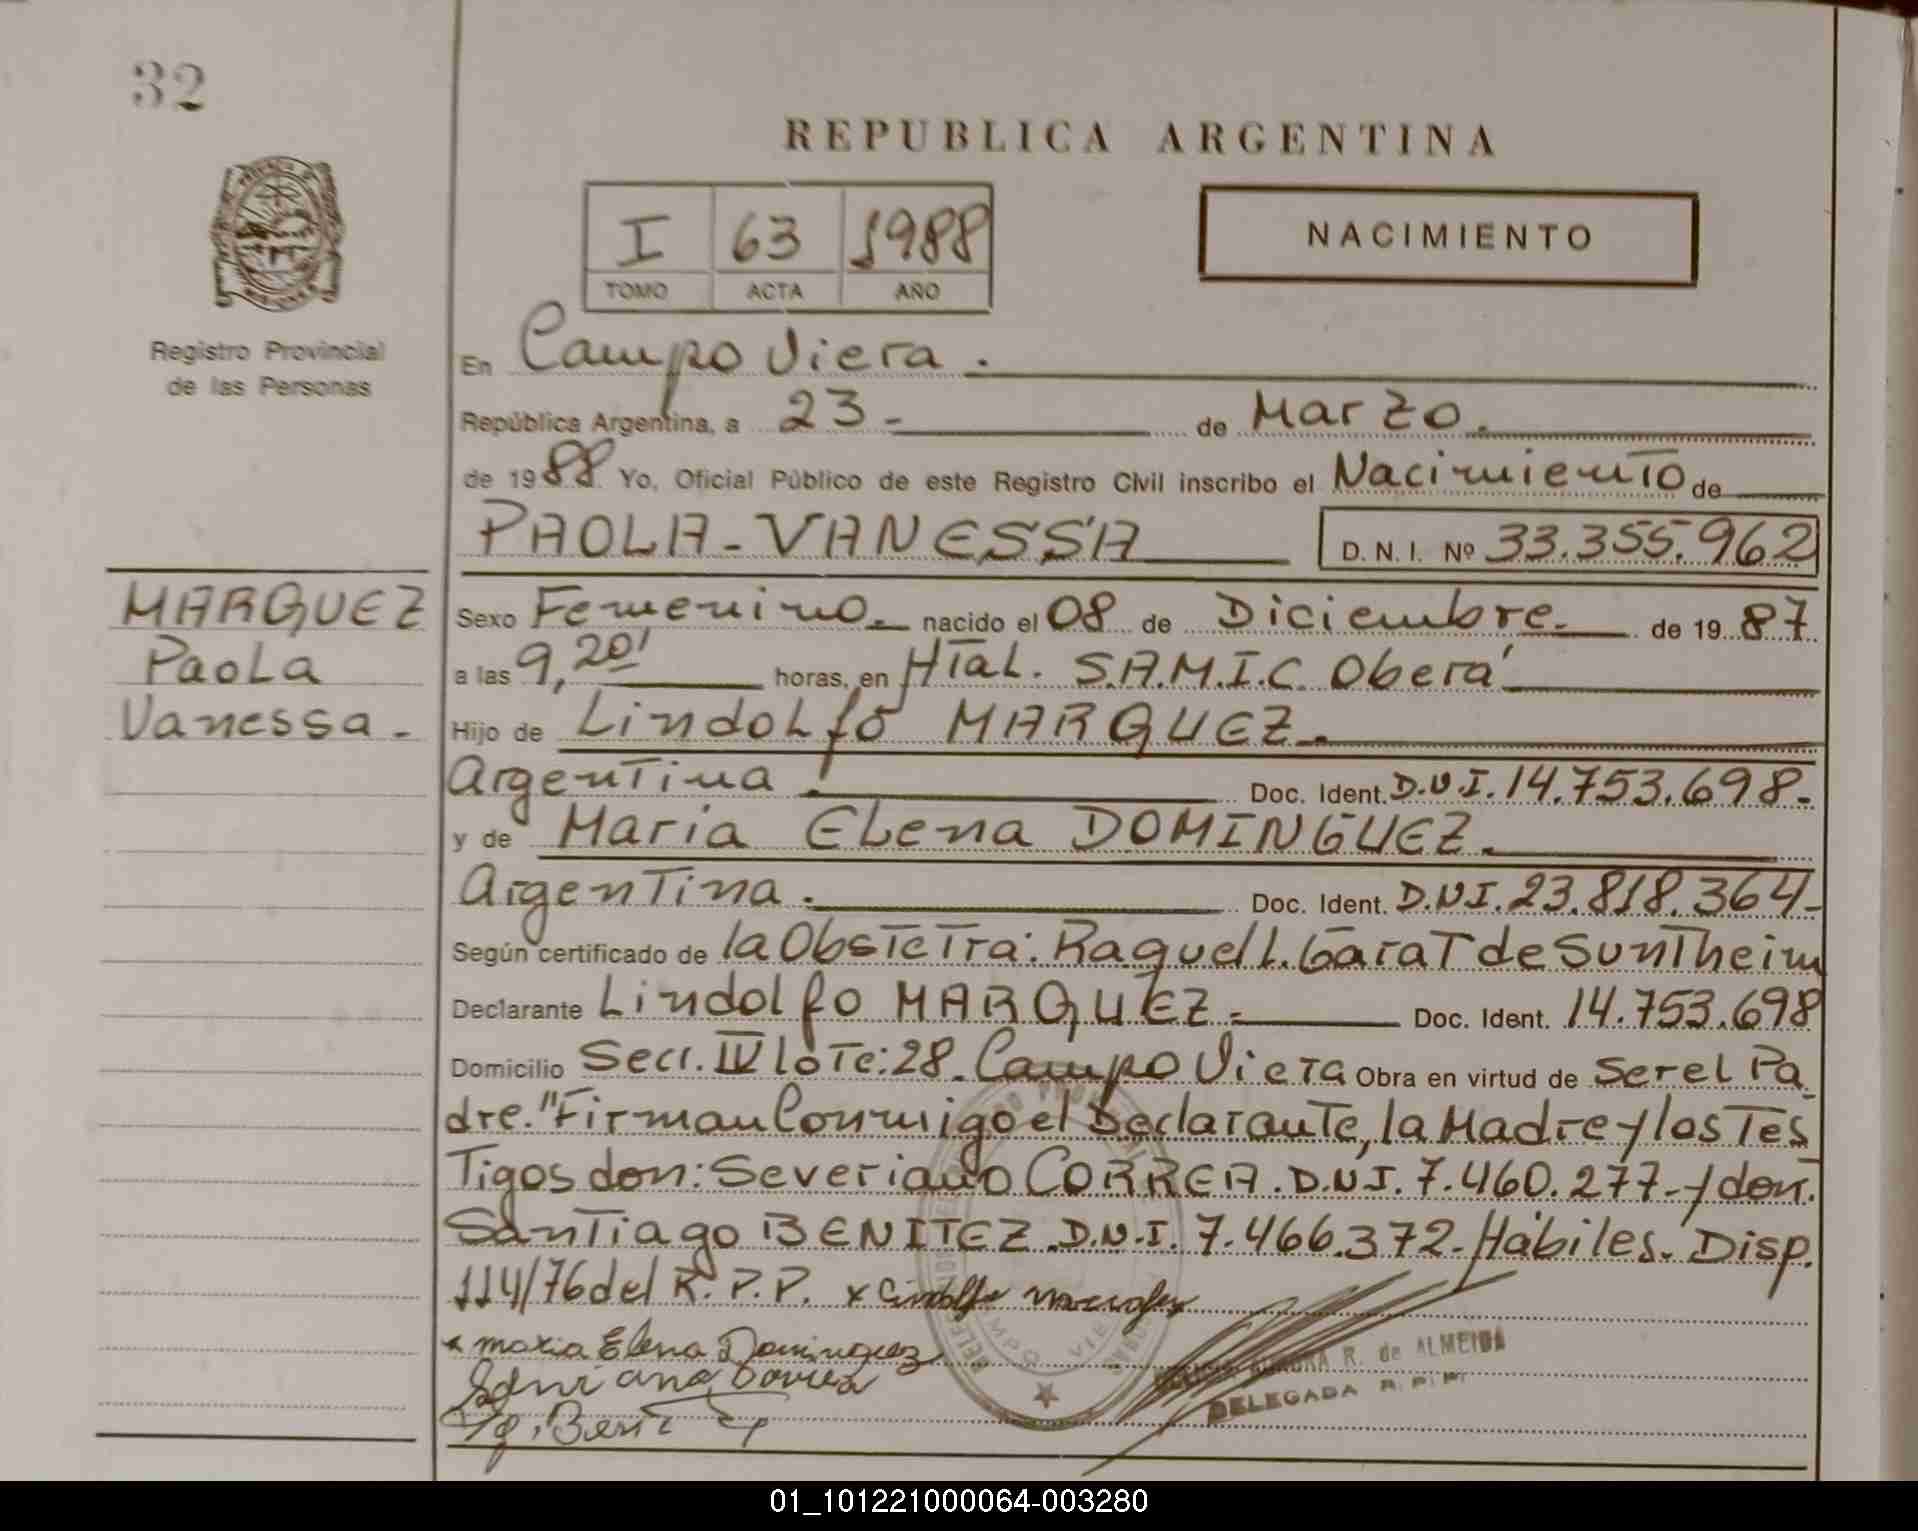 32
REPUBLICA ARGENTINA
I 63 1988
TOMO ACTA AÑO
NACIMIENTO
Registro Provincial
de las Personas
En Campo Viera.
República Argentina, a 23- de Marzo.
de 1988 Yo, Oficial Público de este Registro Civil inscribo el Nacimiento de
PAOLA-VANESSA D. N. I. Nº 33.355.962
MARQUEZ
Paola
Vanessa.-
Sexo Femenino.- nacido el 08 de Diciembre.- de 1987
a las 9,20' horas, en Htal. S.A.M.I.C. Oberá
Hijo de Lindolfo MARQUEZ.-
Argentina. Doc. Ident. D.N.I. 14.753.698-
y de Maria Elena DOMINGUEZ.
Argentina. Doc. Ident. D.N.I. 23.818.364-
Según certificado de la Obstetra: Raquel L. Garat de Suntheim
Declarante Lindolfo MARQUEZ.- Doc. Ident. 14.753.698
Domicilio Secc. IV lote: 28. Campo Viera Obra en virtud de ser el Pa
dre." Firman Conmigo el Declarante, la Madre y los Tes
Tigos don: Severiano CORREA. D.N.I. 7.460.277- y don.
Santiago BENITEZ. D.N.I. 7.466.372- Hábiles. Disp.
114/76 del R. P. P. x
x maria Elena Dominguez
R. de ALMEIDA
DELEGADA R. P. P.
01_101221000064-003280